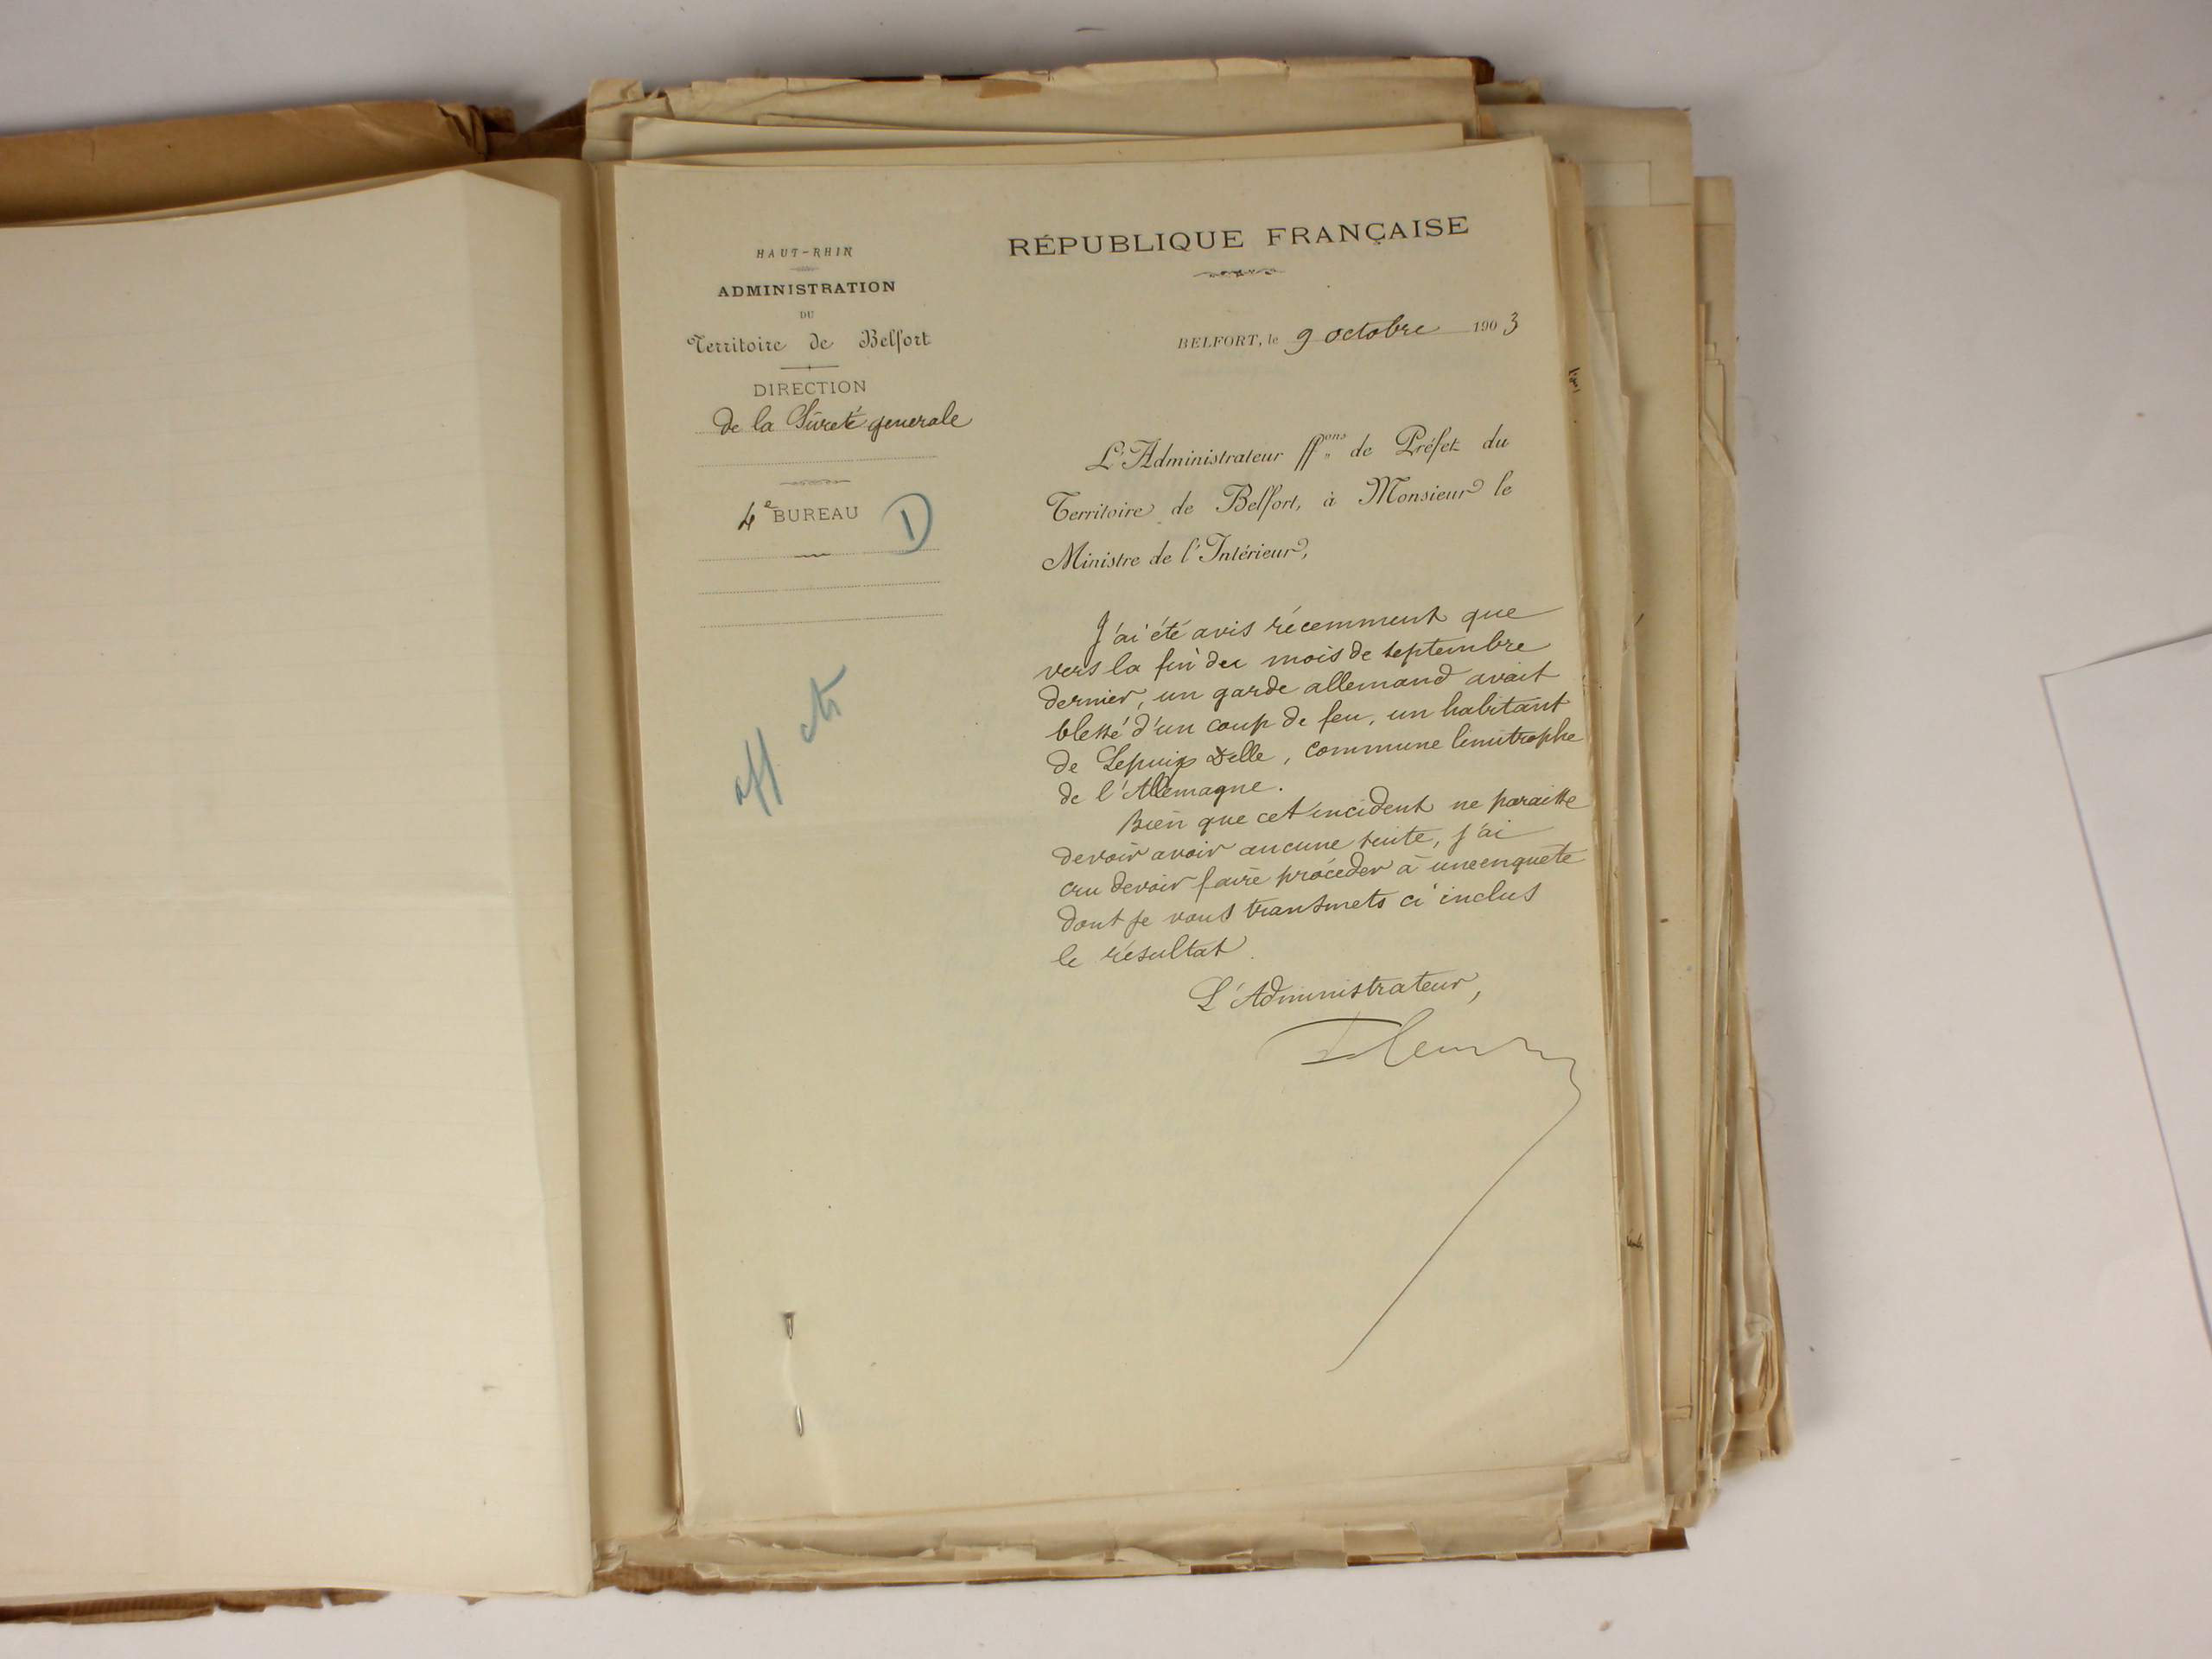 HAUT-RHIN
ADMINISTRATION
DU
Territoire de Belfort
DIRECTION
de la Sûreté generale
4e BUREAU
D
aff
RÉPUBLIQUE FRANÇAISE
BELFORT, le 9 octobre 1903
L'Administrateur ffons de Préfet du
Territoire de Belfort, à Monsieur le
Ministre de l'Intérieur,
J'ai été avis récemment que
vers la fin du mois de septembre
dernier, un garde allemand avait
blessé d'un coup de feu, un habitant
de Lepuix Delle, commune limitrophe
de l'Allemagne.
Bien que cet incident ne paraisse
devoir avoir aucune suite, j'ai
cru devoir faire procéder à une enquête
dont je vous transmets ci inclus
le résultat.
L'Administrateur,